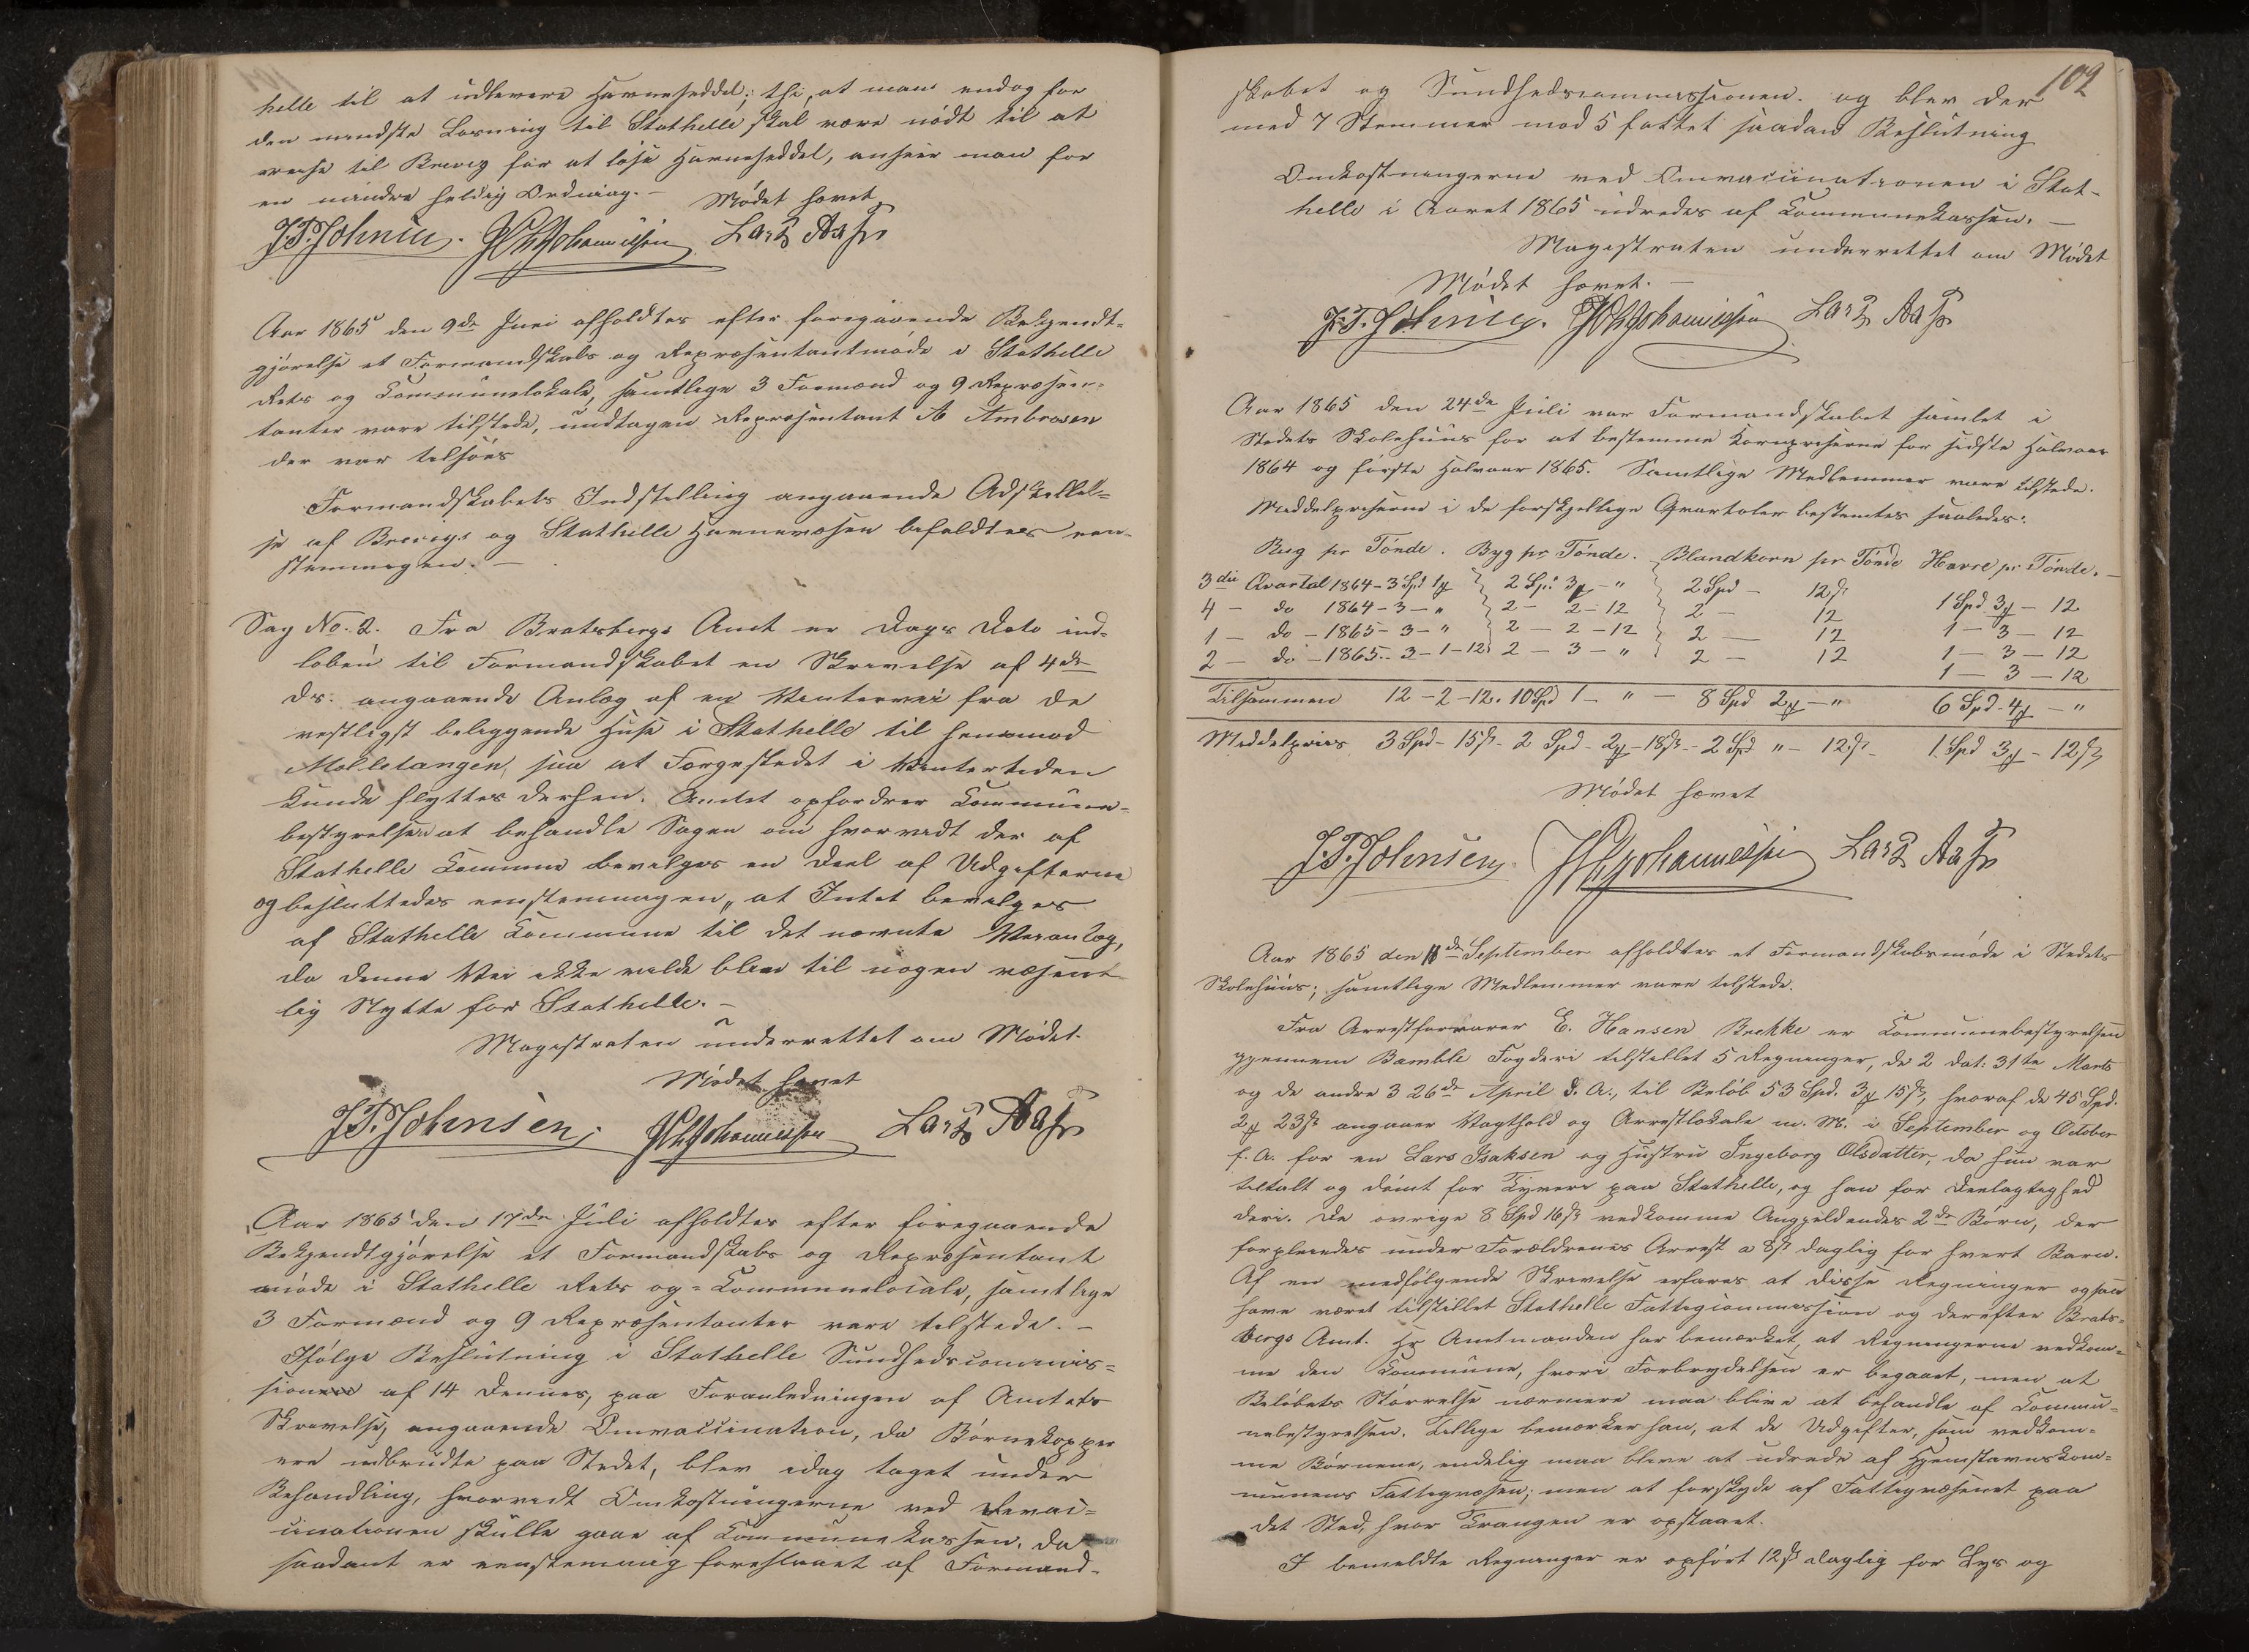 helle til at udlevere Havneseddel; thi, at man endog for
den mindste Losning til Stathelle skal være nødt til at
reise til Brevig for at løse Havneseddel, anseer man for
en mindre heldig Ordning. – Mødet hævet
J.P. Johnsen. Lars Aas
Aar 1865 den 9de Juni afholdtes efter foregaaende Bekjendt-
gjørelse et Formandskabs og Repræsentantmøde i Stathelle
Rets og Communelokale, samtlige 3 Formænd og 9 Repræsen-
tanter vare tilstede, undtagen Repræsentant A Ambrosen
der var tilsøes
Formandskabets Indstilling angaaende Adskillel-
se af Brevigs og Stathelle Havnevæsen befoldtes een-
stemmigen. –
Sag No. 2. Fra Bratsbergs Amt er Dags Dato ind-
løben til Formandskabet en Skrivelse af 4de
ds. angaaende Anlæg af en Vintervei fra de
vestligst beliggende Huse i Stathelle til henimod
Molletangen, saa at Færgestedet i Vintertiden
kunde flyttes derhen. Amtet opfordrer Commune-
bestyrelsen at behandle Sagen om hvorvidt der af
Stathelle Commune bevilges en Deel af Udgifterne
og besluttedes eenstemmigen „at Intet bevilges
af Stathelle Kommune til det nævnte Veianlæg,
da denne Vei ikke vilde blive til nogen væsent
lig Nytte for Stathelle. –
Magistraten underrettet om Mødet.
Mødet hævet
J.P. Johnsen. Lars Aas
Aar 1865 den 17de Juli afholdtes efter foregaaende
Bekjendtgjørelse et Formandskabs og Repræsentant
møde i Stathelle Rets og = Communelocale, samtlige
3 Formænd og 9 Repræsentanter vare tilstede. –
Ifølge Beslutning i Stathelle Sundhedscommis=
sionen af 14 dennes, paa Foranledningen af Amtets
Skrivelse, angaaende Omvaccination, da Børnekopper
ere udbrudte paa Stedet, blev idag taget under
Behandling, hvorvidt Omkostningerne ved Revac=
cinationen skulle gaae af Communekassen, da
saadant er eenstemmig foreslaaet af Formand-
102
skabet og Sundhedscommissionen. og blev der
med 7 Stemmer mod 5 fattet saadan Beslutning
Omkostningerne ved Omvaccinationen i Stat-
helle i Aaret 1865 udredes af Communekassen. –
Magistraten underrettet om Mødet
Mødet hævet. –
J.P. Johnsen. Lars Aas
Aar 1865 den 24de Juli var Formandskabet samlet i
Stedets Skolehuus for at bestemme Kornpriserne for sidste Halvaar
1864 og første Halvaar 1865. Samtlige Medlemmer vare tilstede.
Middelpriserne i de forskjellige Qvartaler bestemtes saaledes:
Rug pr Tønde. Byg pr Tønde. Blandkorn pr Tønde Havre pr. Tønde. –
3die Qvartal 1864 – 3 Spd 1 2 Spd 3 – " 2 Spd – 12 1 Spd 3 – 12
4 – do 1864 – 3 – " 2 – 2 – 12 2 – 12 1 – 3 – 12
1 – do – 1865 – 3 – " 2 – 2 – 12 2 – 12 1 – 3 – 12
2 – do – 1865 – 3 – 1 – 12 2 – 3 – " 2 – 12 1 – 3 – 12
Tilsammen 12 – 2 – 12. 10 Spd 1 – " – 8 Spd 2 – " 6 Spd – 4 – "
Middelpriis 3 Spd – 15 – 2 Spd – 2 – 18 – 2 Spd " – 12 – 1 Spd 3 – 12
Mødet hævet
J.P. Johnsen. Lars Aas
Aar 1865 den September afholdtes et Formandskabsmøde i Stedets
Skolehuus; samtlige Medlemmer vare tilstede.
Fra Arrestforvarer E. Hansen Brekke er Communebestyrelsen
gjennem Bamble Fogderi tilstillet 5 Regninger, de 2 dat: 31te Marts
og de andre 3 26de April d. A., til Beløb 53 Spd. 3 15, hvoraf de 45 Spd.
2 23 angaaer Vagthold og Arrestlokale m. M. i September og October
f. A. for en Lars Isaksen og Hustru Ingeborg Olsdatter, da hun var
tiltalt og dømt for Tyveri paa Stathelle, og han for Deelagtighed
deri. De øvrige 8 Spd 16 vedkomme Angjeldendes 2de Børn, der
forpleiedes under Forældrenes Arrest a 8 daglig for hvert Barn.
Af en medfølgende Skrivelse erfares at disse Regninger ogsaa
have været tilstillet Stathelle Fattigcommission og derefter Brats=
bergs Amt. Hr Amtmanden har bemærket, at Regningerne vedkom=
me den Commune, hvori Forbrydelsen er begaaet, men at
Beløbets Størrelse nærmere maa blive at behandle af Commu=
nebestyrelsen. Tillige bemærker han, at de Udgifter, som vedkom=
me Børnene, endelig maa blive at udrede af Hjemstavnskom=
munens Fattigvæsen; men at forskyde af Fattigvæsenet paa
det Sted, hvor Trangen er opstaaet.
I bemeldte Regninger er opført 12 daglig for Lys og